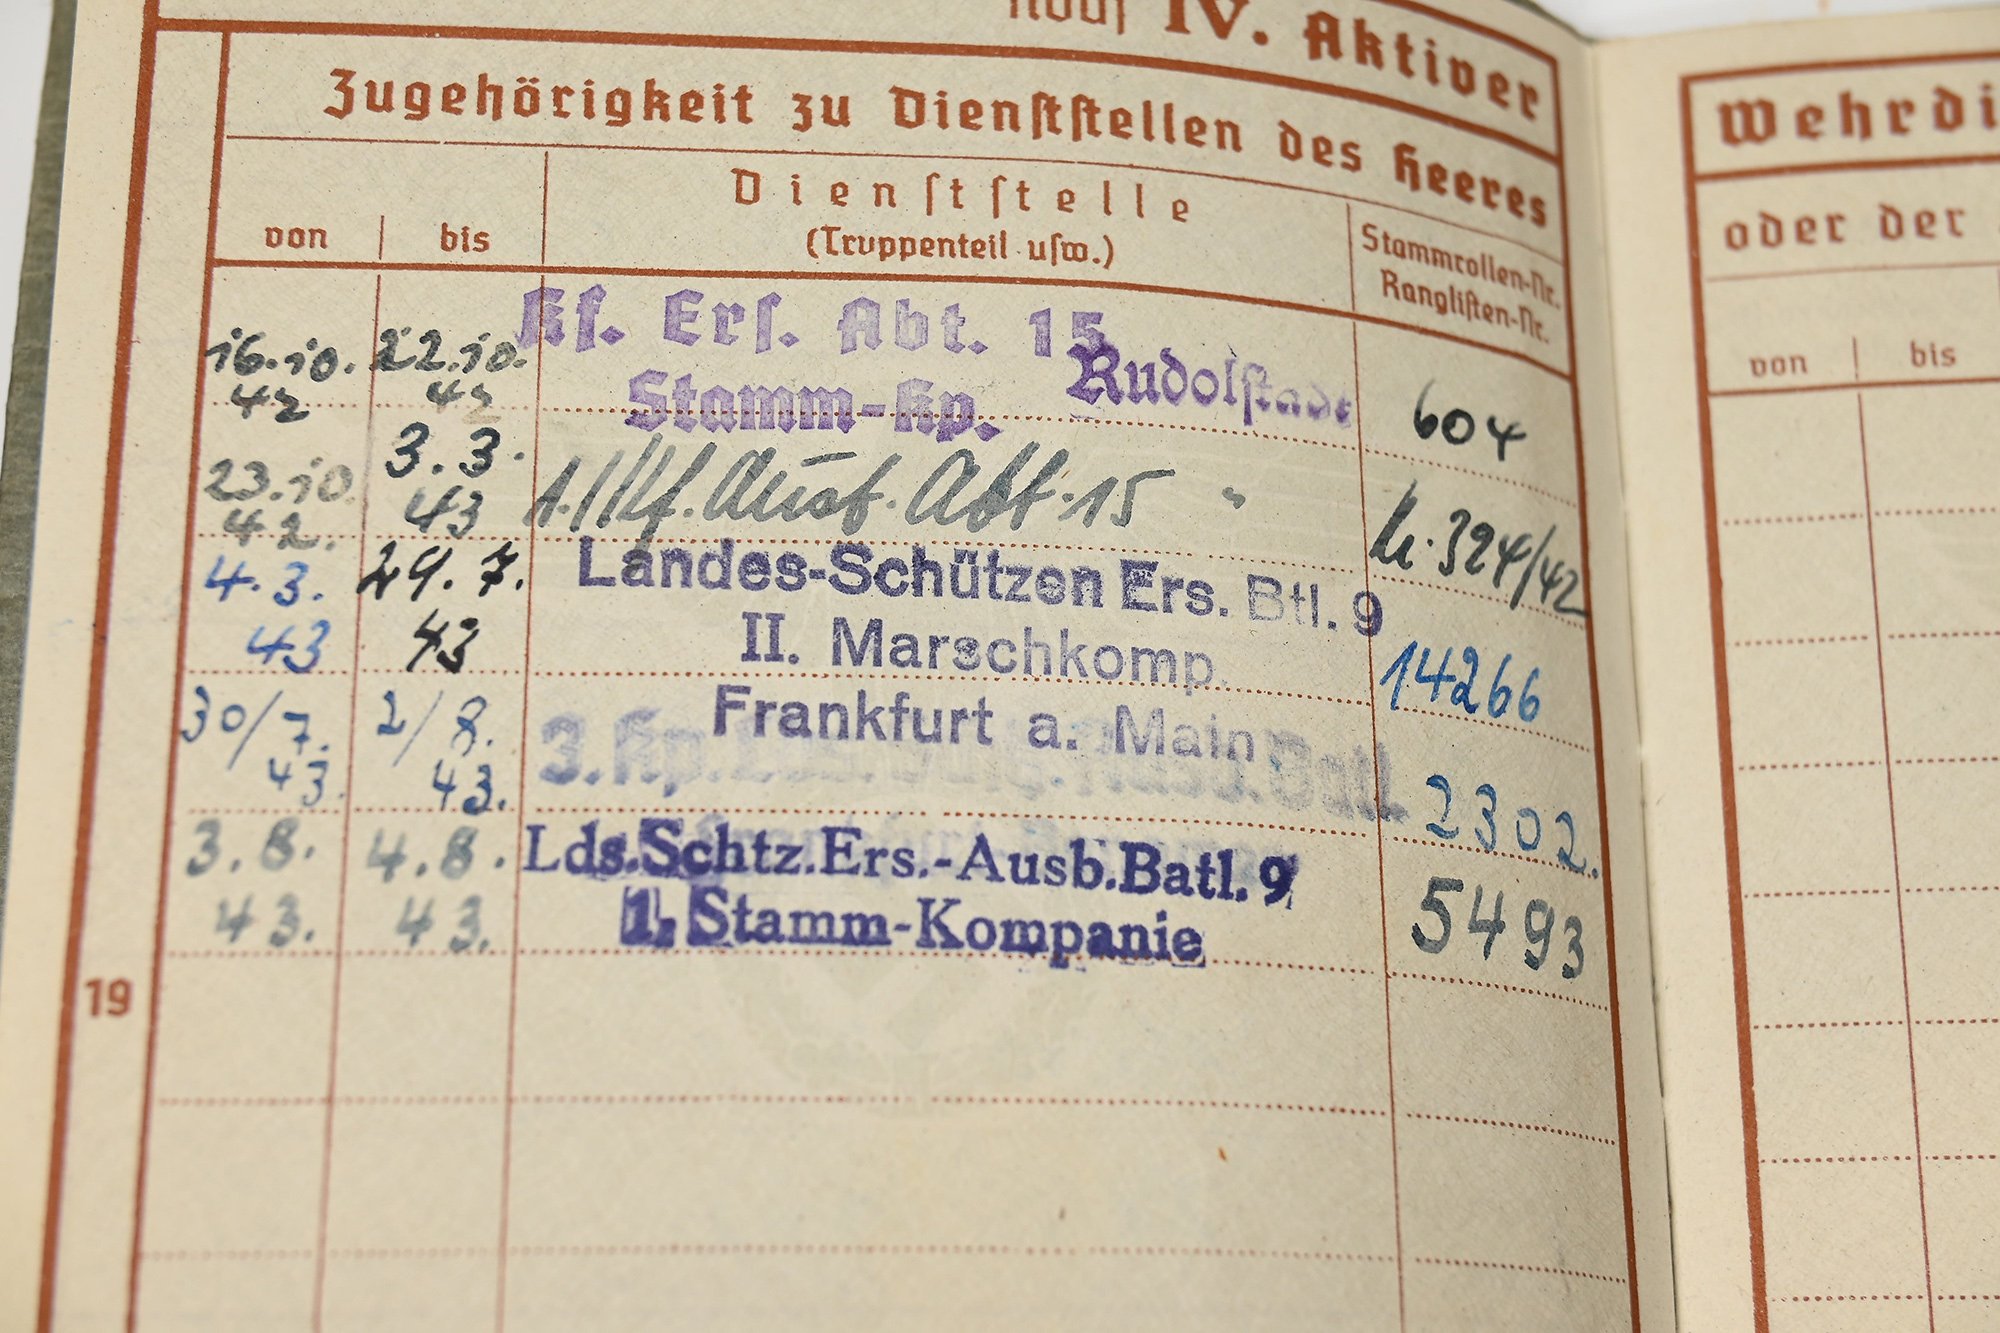 noch IV. Aktiver
Zugehörigkeit zu Dienststellen des Heeres
von | bis
Dienststelle
(Truppenteil usw.)
Stammrollen-Nr.
Ranglisten-Nr.
16.10. 42
22.10. 42
Kf. Ers. Abt. 15
Rudolstadt
Stamm-Kp.
604
23.10. 42.
3.3. 43
1./Kf. Ausb. Abt. 15 "
324/42
4.3. 43
29.7. 43
Landes-Schützen Ers. Btl. 9
II. Marschkomp.
Frankfurt a. Main
14266
30/7. 43.
2/8. 43.
3. Kp. Batl.
2302.
3.8. 43.
4.8. 43.
Lds.Schtz.Ers.-Ausb.Batl. 9
1. Stamm-Kompanie
5493
19
Wehrdi
oder der
von | bis